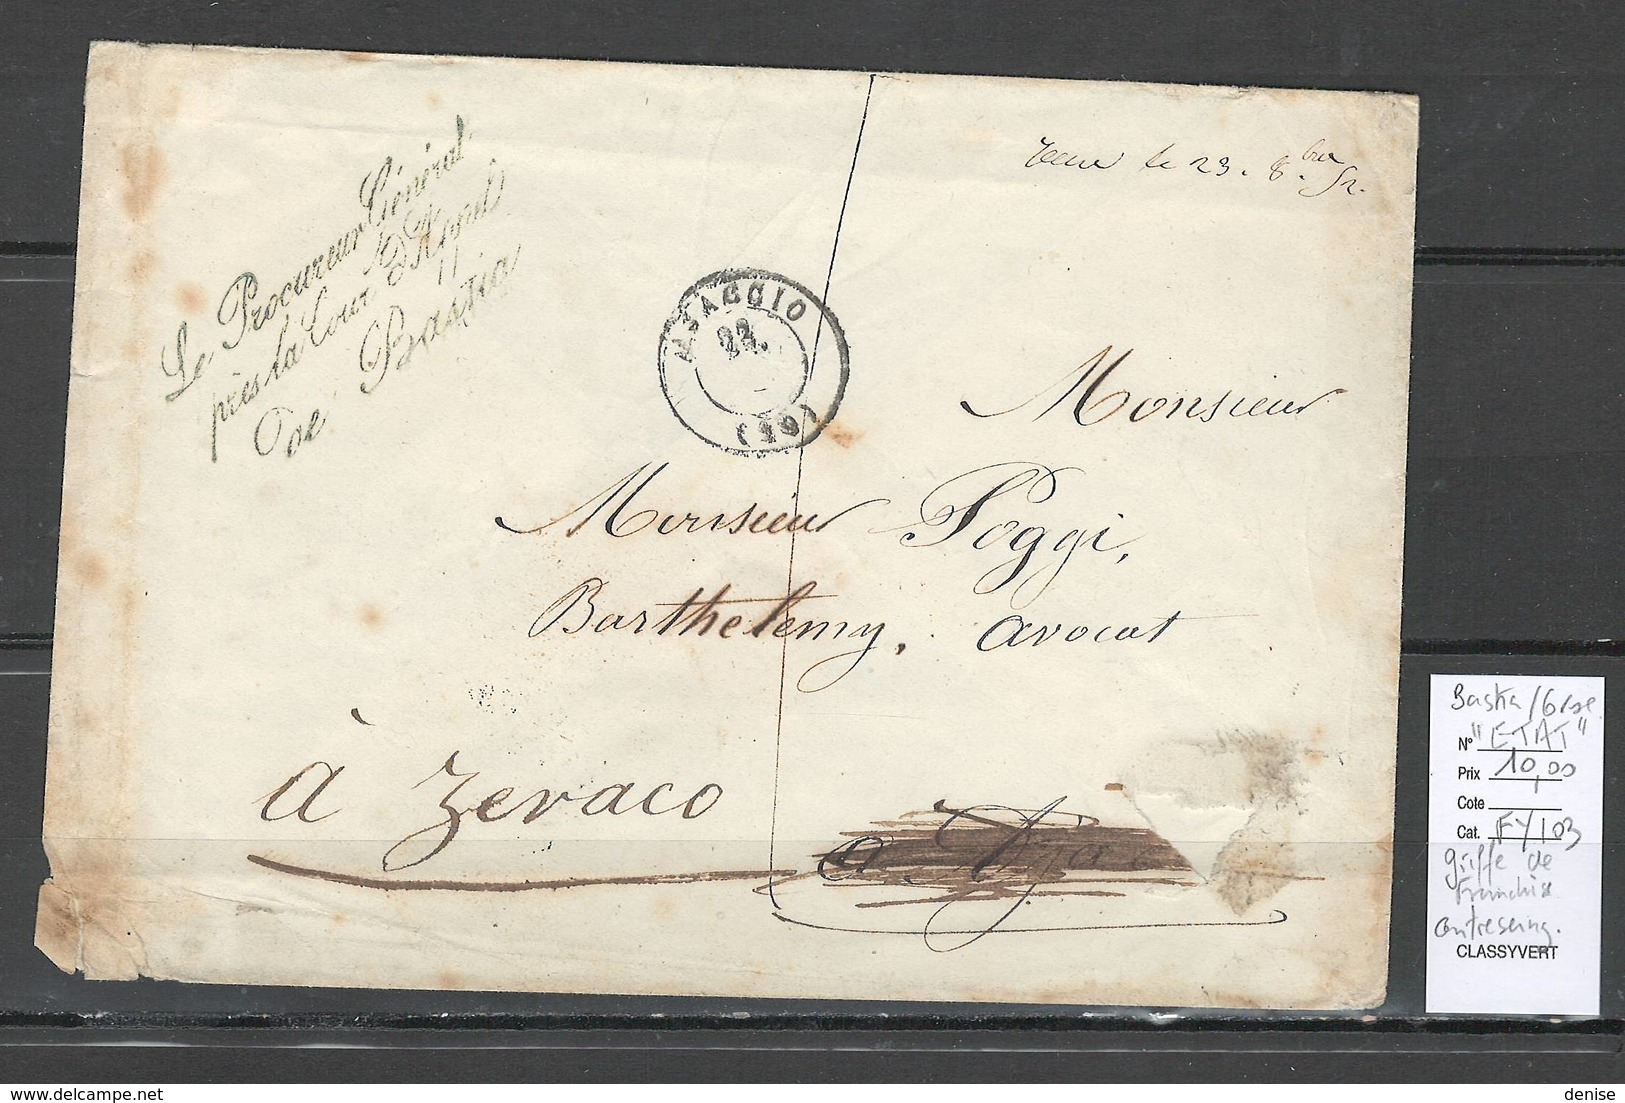 Le Procureur Général
près la Cour d'Appel
de Bastia
le 23. 8.bre 52.
AJACCIO
22
(20)
Monsieur
Monsieur Poggi,
Barthelemy, avocat
à Zevaco
a Ajac
Bastia/Corse
N° "ETAT"
Prix 10,00
Cote
Cat. FY103
griffe de
Franchise
contreseing.
CLASSYVERT
denise